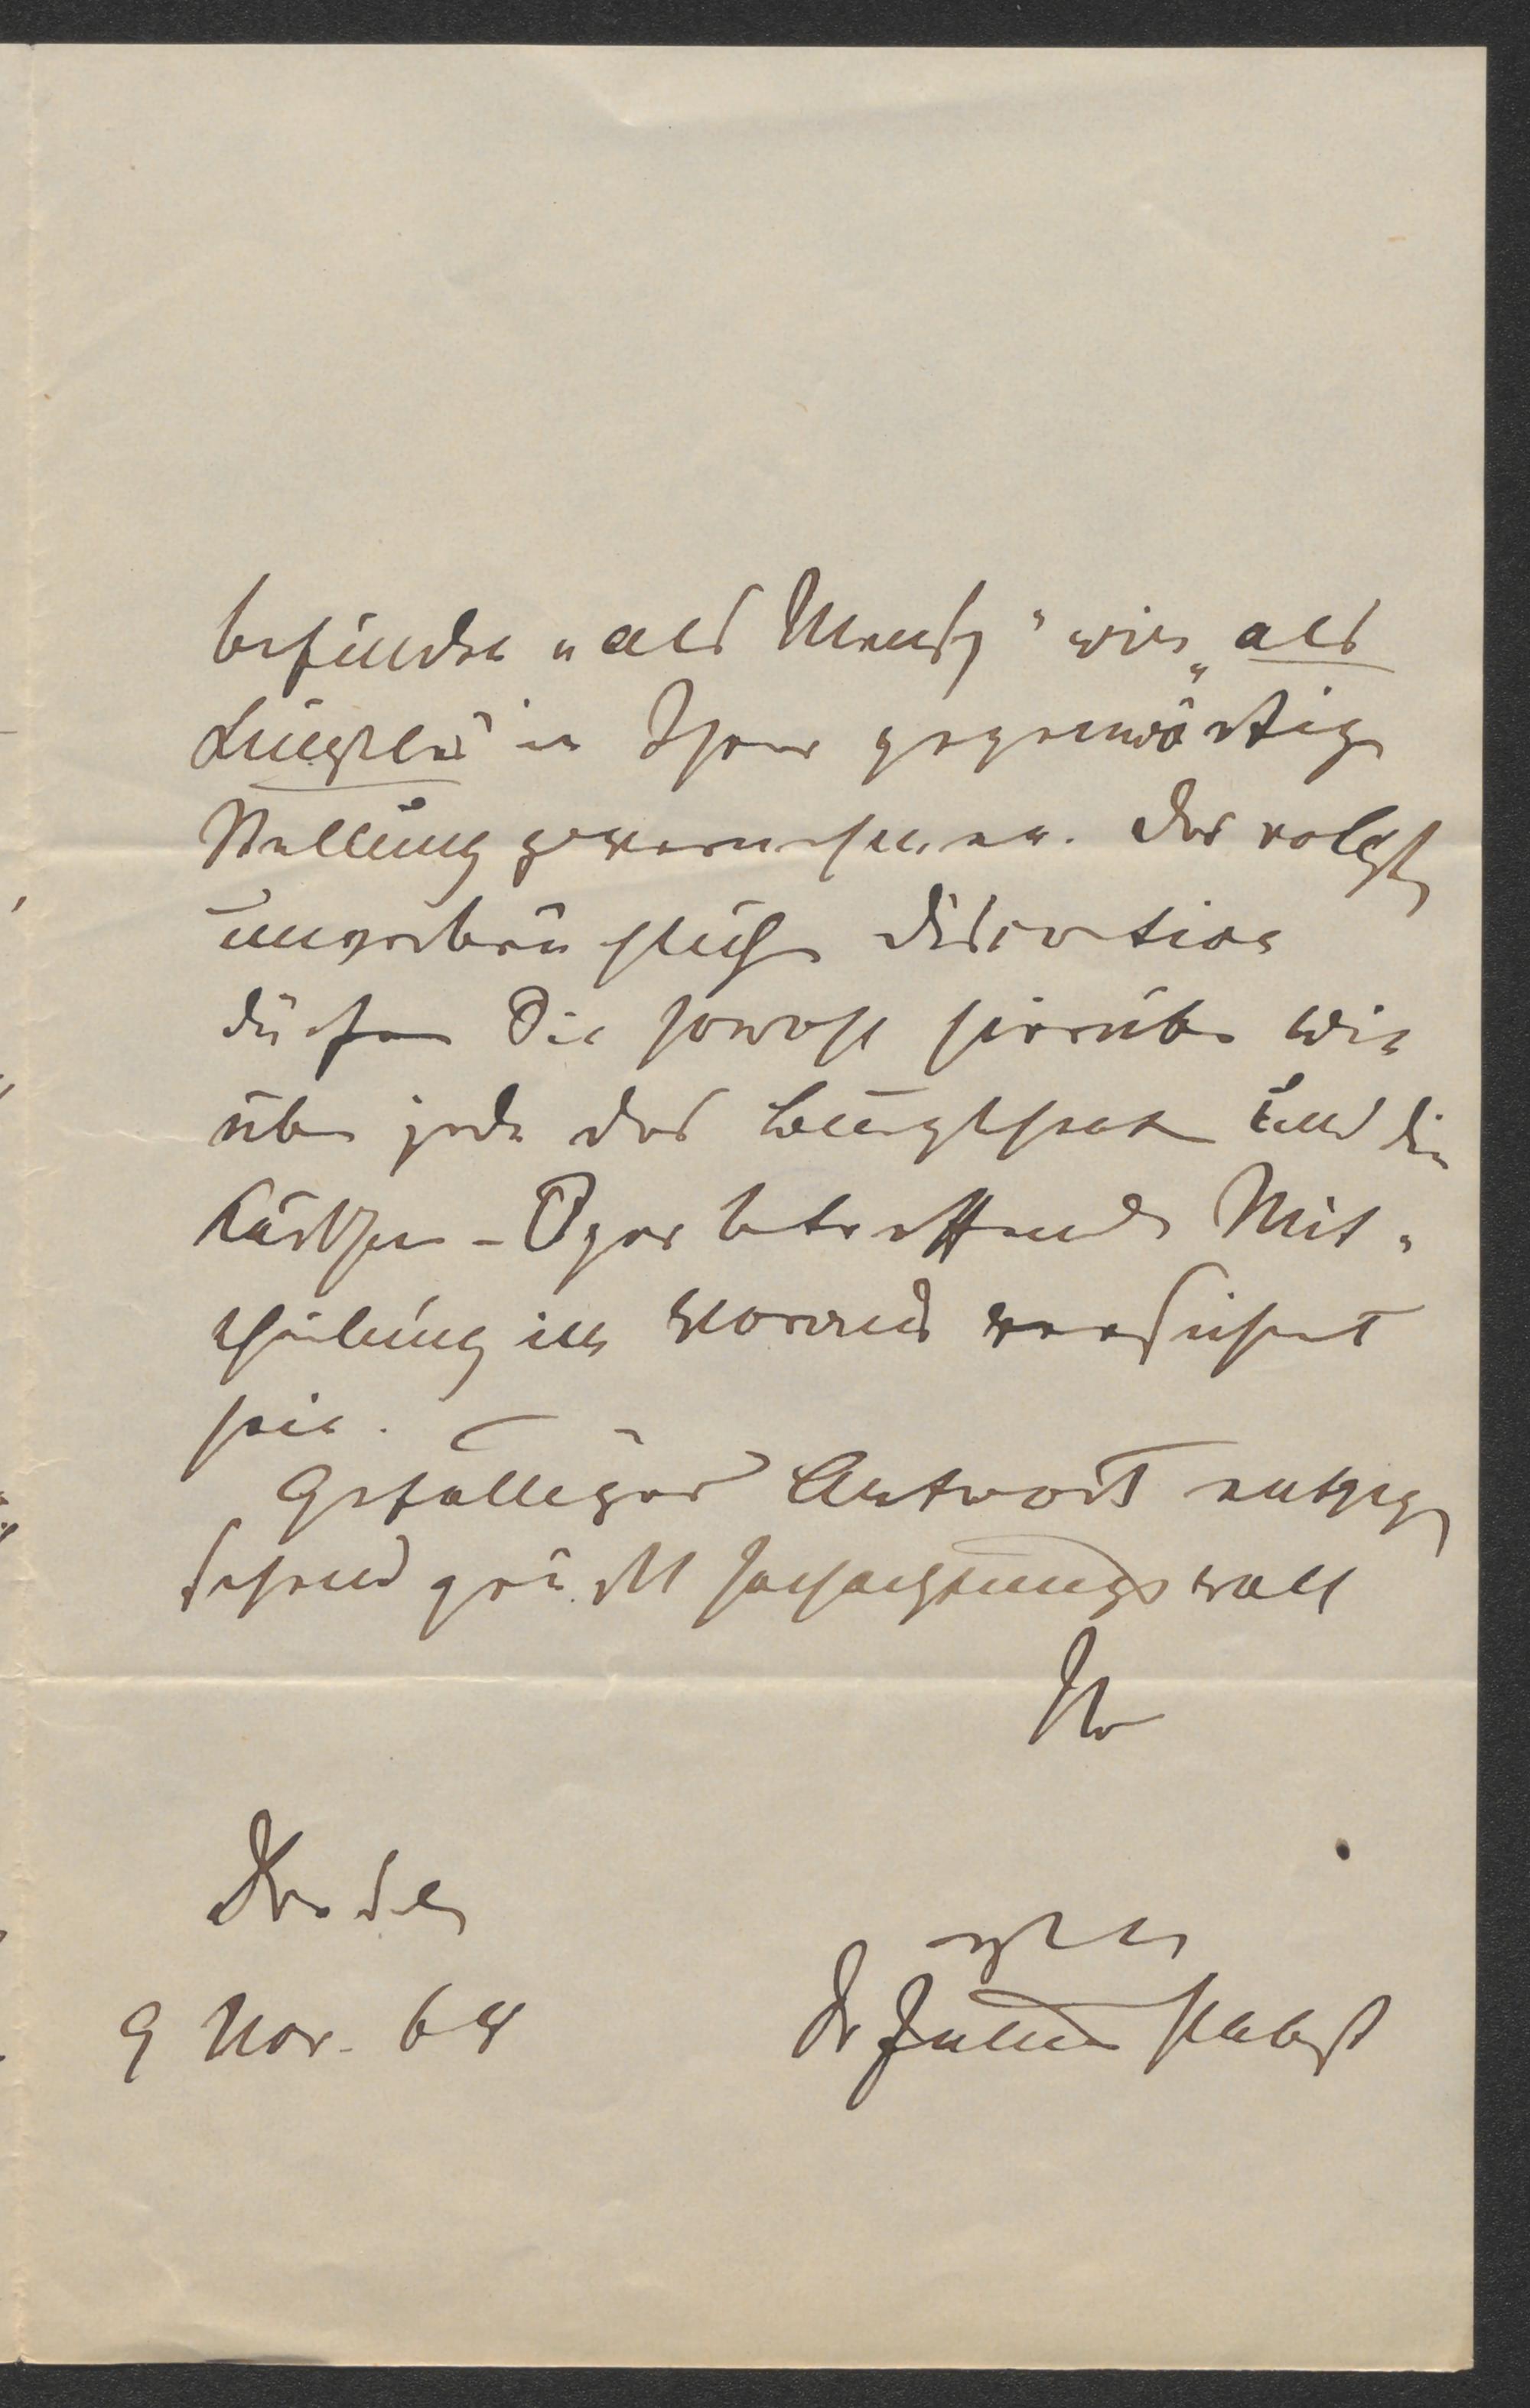 befinden „als Mensch" wie „als
Künstler" in Ihrer gegenwärtigen
Stellung zu vernehmen. Der vollsten
unverbrüchlichen Discretion
dürfen Sie sowohl hierüber wie
über jede das und die
Oper betreffende Mit-
theilung im Voraus versichert
sein.
Gefälliger Antwort entgegen
sehend grüßt hochachtungsvoll
Ihr
Dresden
9 Nov. 68
Dr Julius Pabst